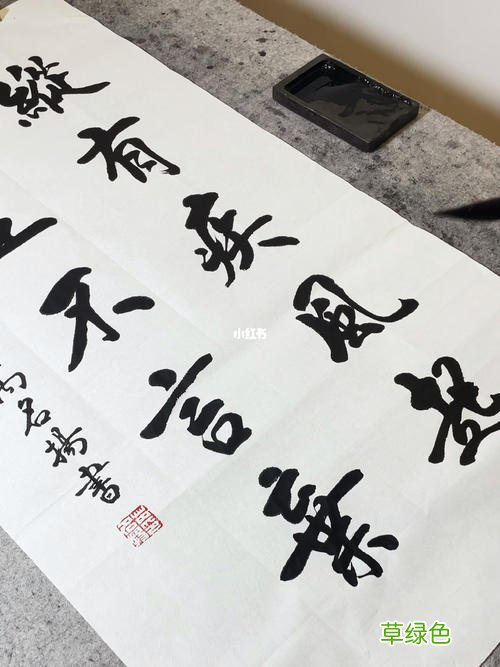 縱有疾風起
不言棄
名揚書
小红书
草绿色